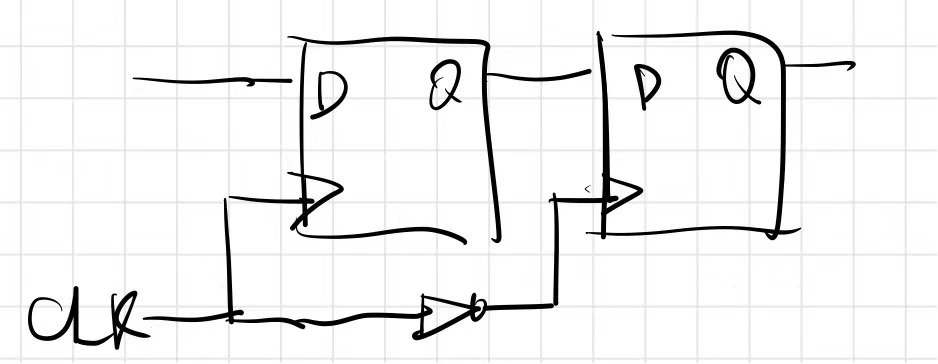 D Q D Q
CLK